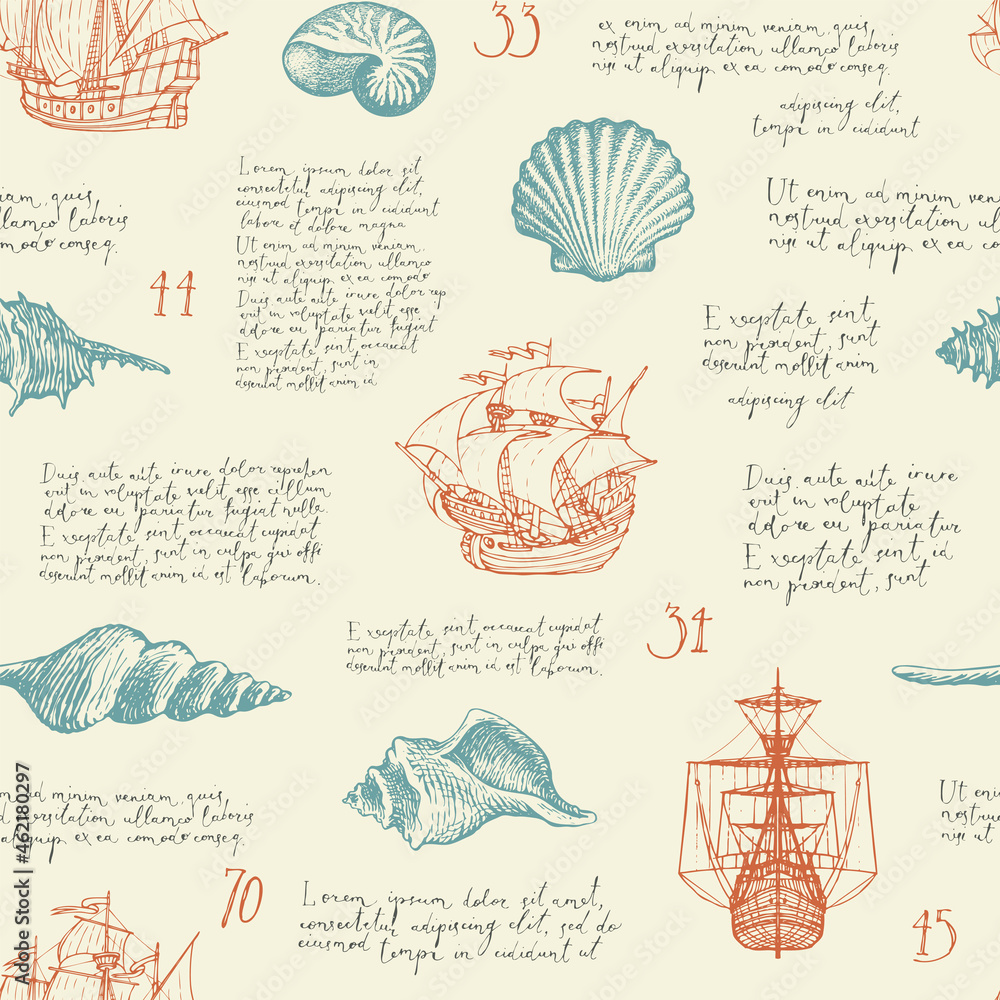 33
ex enim ad minim veniam, quis
nostrud exersitation ullamco laboris
nisi ut aliquip ex ea comodo conseq.
adipiscing elit,
tempr in cididunt
Lorem ipsum dolor sit
consectetur adipiscing elit,
eiusmod tempr in cididunt
labore et dolore magna
Ut enim ad minim veniam,
nostrud exersitation ullamco
nisi ut aliquip ex ea comodo
Duis aute aute irure dolor rep
erit in voluptate velit esse
ddore eu pariatur fugiat
Exceptate sint occaecat
non proident, sunt in
deserunt mollit anim id
niam, quis
llamco laboris
omodo conseq.
Ut enim ad minim veniam
nostrud exersitation ullamco
nisi ut aliquip ex ea comodo
44
Exceptate sint
non proident, sunt
deserunt mollit anim
adipiscing elit
Duis aute aute irure dolor reprehen
erit in voluptate velit esse cillum
ddore eu pariatur fugiat nulla.
Exceptate sint occaecat cupidat
non proident, sunt in culpa qui offi
deserunt mollit anim id est laborum.
Duis aute aute irure
erit in voluptate
ddore eu pariatur
Exceptate sint id
non proident, sunt
Exceptate sint occaecat cupidat
non proident, sunt in culpa qui offi
deserunt mollit anim id est laborum.
34
ad minim veniam, quis
d exersitation ullamco laboris
aliquip ex ea comodo conseq.
Ut eni
nostrud
nisi ut
70
Lorem ipsum dolor sit amet,
consectetur adipiscing elit, sed do
eiusmod tempr in cididunt ut
45
Adobe Stock | #462180297